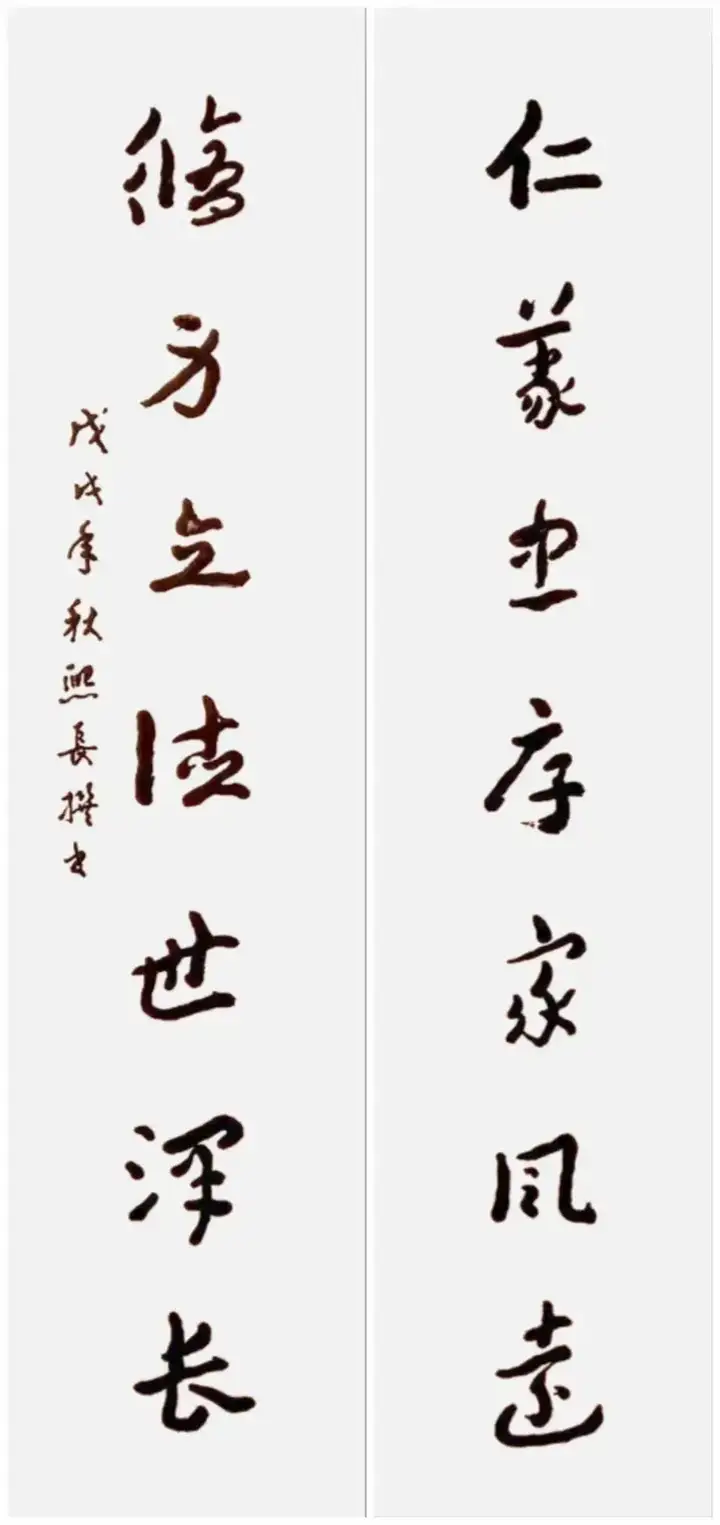 仁義忠厚家風遠
脩身立德世澤長
戊戌年秋熙長撰书